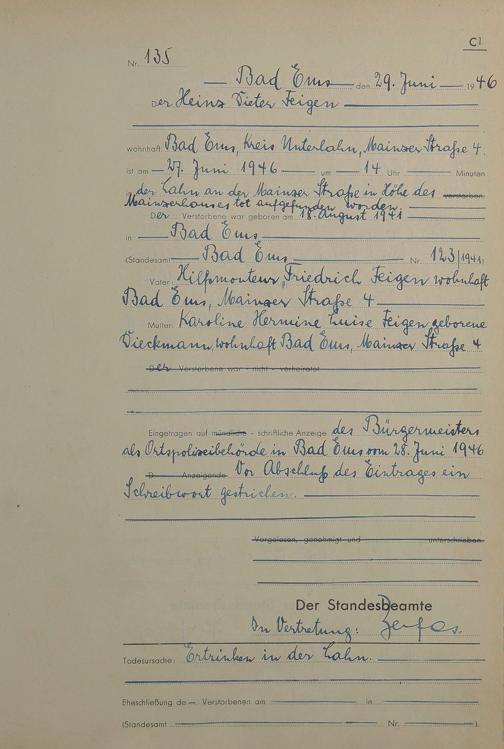 C1
Nr. 135
Bad Ems, den 29. Juni 1946
Der Heinz Dieter Feigen
wohnhaft Bad Ems, Kreis Unterlahn, Mainzer Straße 4
ist am 27. Juni 1946 um 14 Uhr Minuten
in der Lahn an der Mainzer Straße in Höhe des verstorben.
Mainzerhauses tot aufgefunden worden.
Der Verstorbene war geboren am 18. August 1941
in Bad Ems
(Standesamt Bad Ems Nr. 123/1941)
Vater: Hilfsmonteur Friedrich Feigen wohnhaft
Bad Ems, Mainzer Straße 4
Mutter: Karoline Hermine Luise Feigen geborene
Dieckmann, wohnhaft Bad Ems, Mainzer Straße 4
Der Verstorbene war - nicht - verheiratet
Eingetragen auf mündliche - schriftliche Anzeige des Bürgermeisters
als Ortspolizeibehörde in Bad Ems vom 28. Juni 1946
D Anzeigende Vor Abschluß des Eintrages ein
Schreibwort gestrichen.
Vorgelesen, genehmigt und unterschrieben
Der Standesbeamte
In Vertretung:
Todesursache: Ertrinken in der Lahn.
Eheschließung de Verstorbenen am in
(Standesamt Nr. ).